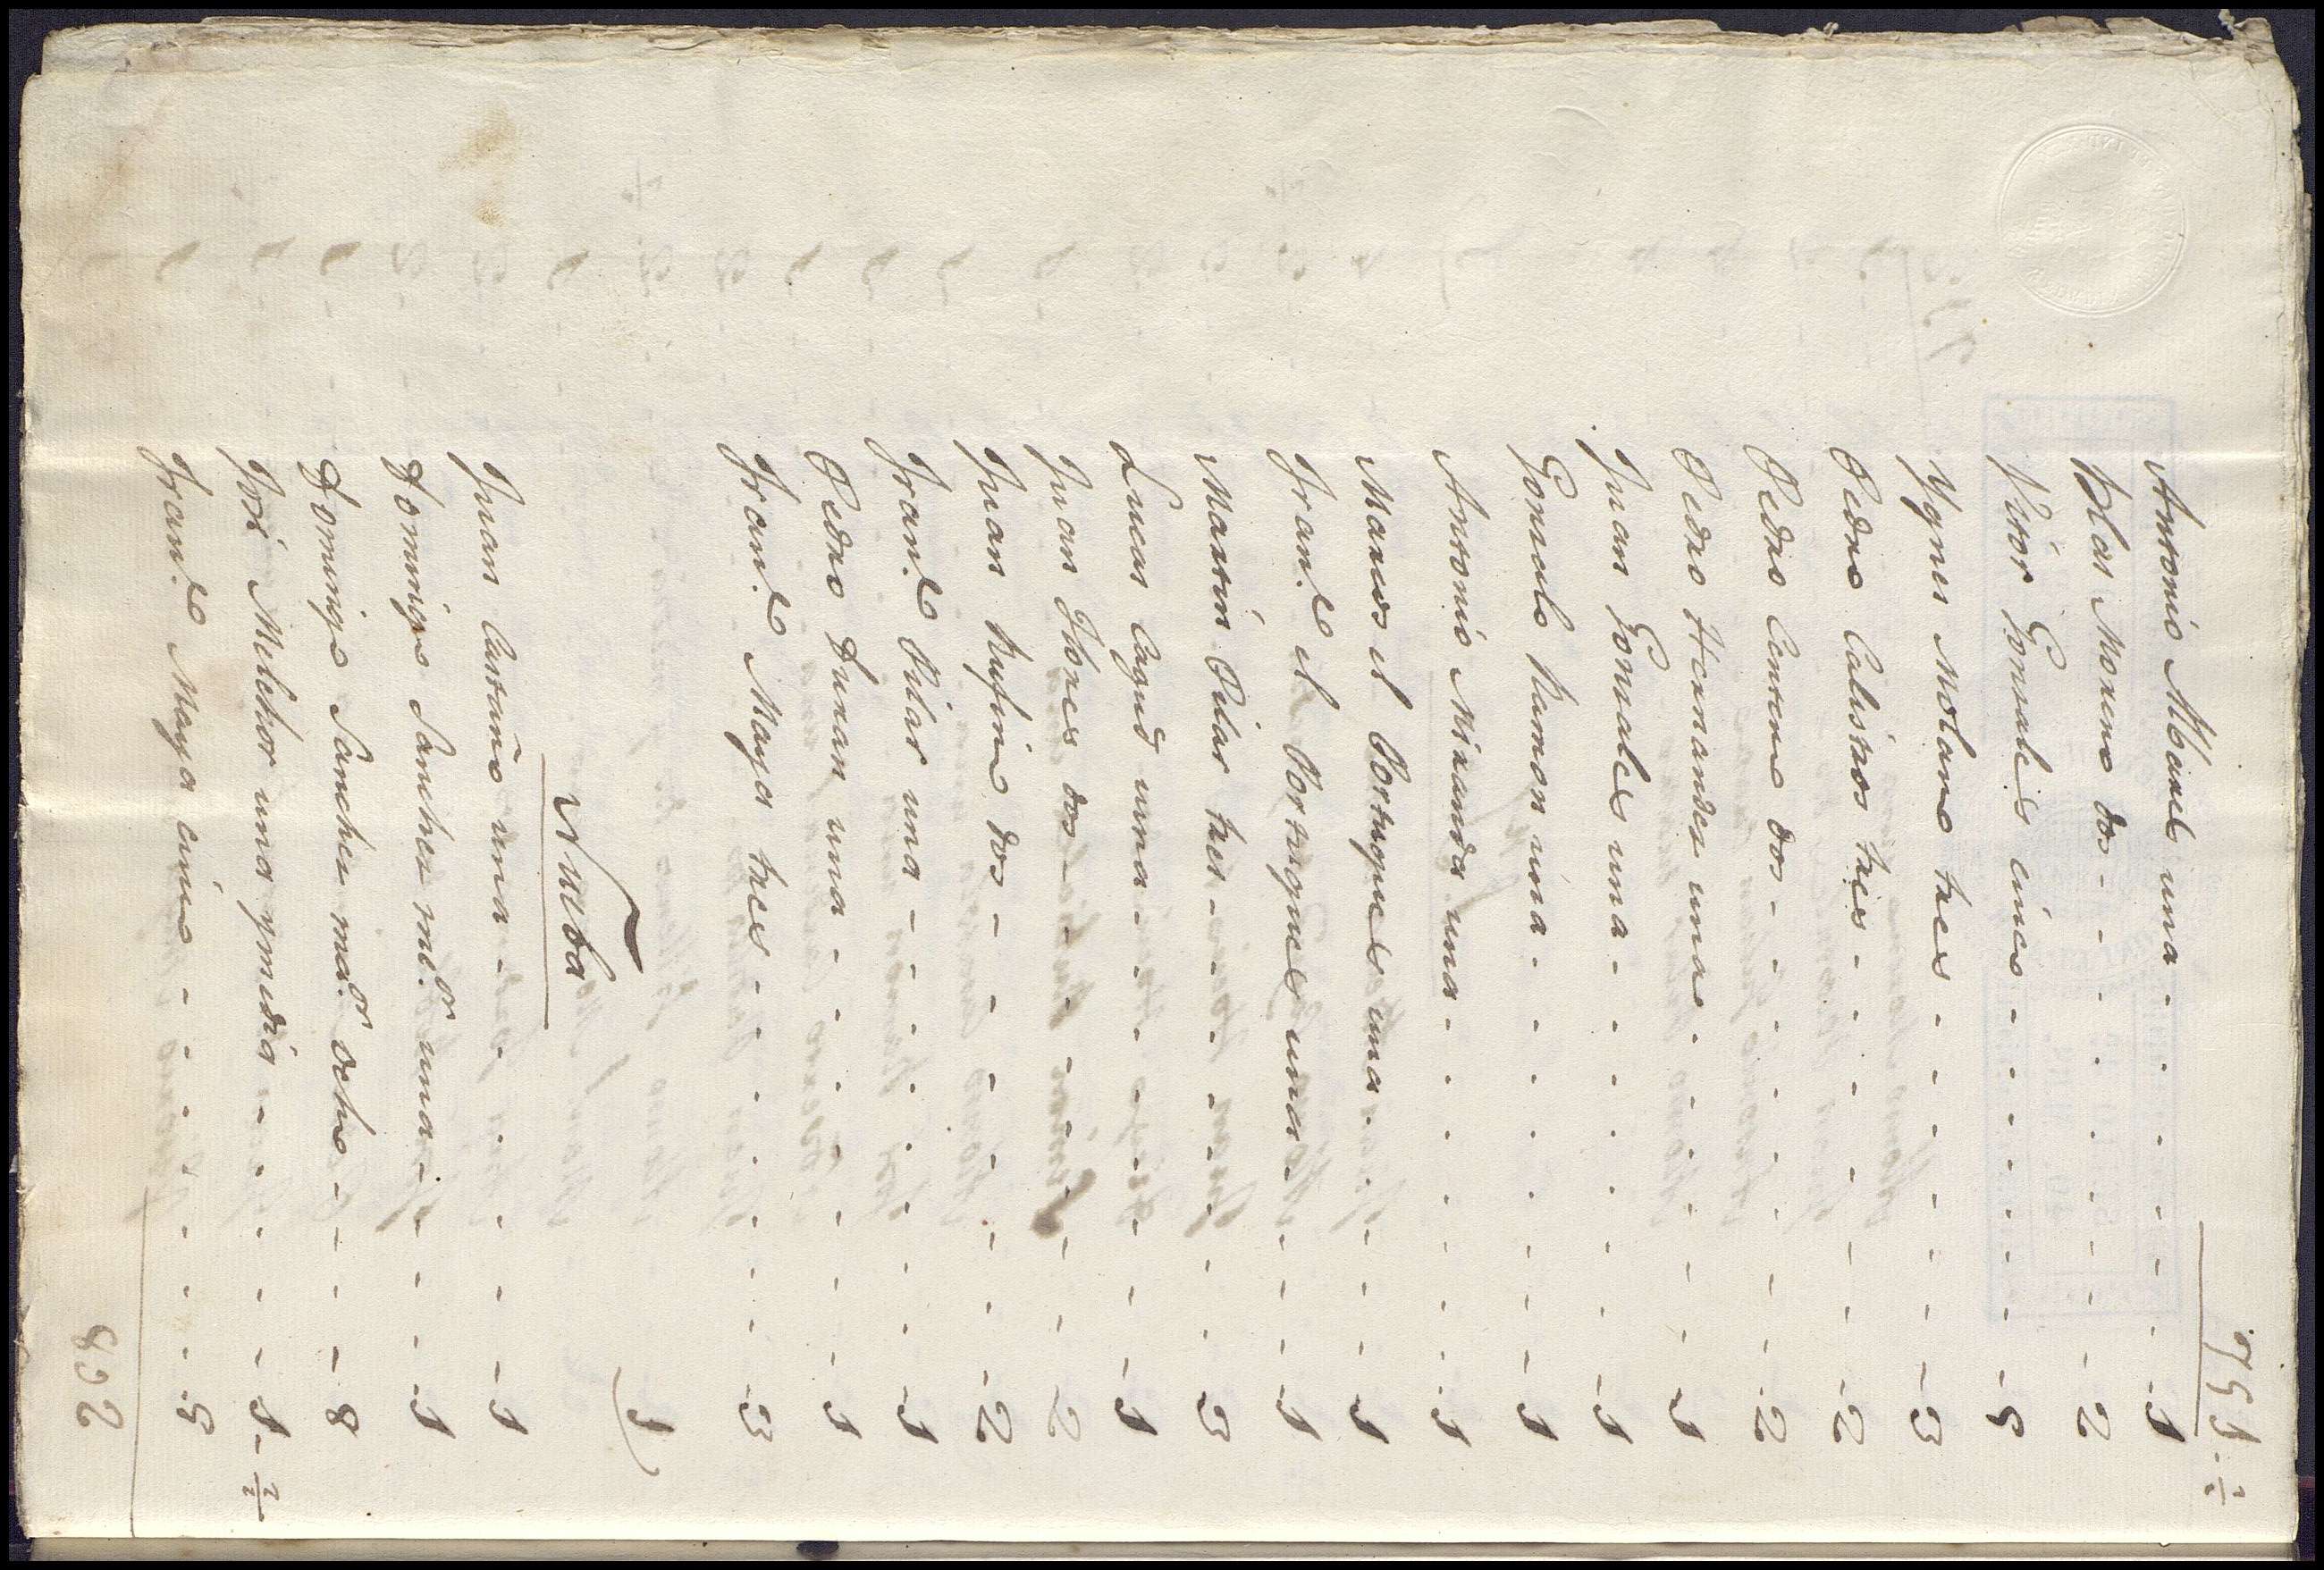 151 ½
Antonio Albares una - - - - - 1
Blas Moreno dos - - - - - 2
Victor Gonzales cinco - - - - - 5
Ygnes Molano tres - - - - - 3
Pedro Calistros tres - - - - - 2
Pedro Centeno dos - - - - - 2
Pedro Hernandez una - - - - - 1
Juan Gonzales una - - - - - 1
Gonzalo Ramon una - - - - - 1
Antonio Miranda una - - - - - 1
Marcos el Portugues una - - - - - 1
Fran.co el Portugues una - - - - - 1
Martin Pilar tres - - - - - 3
Lucas una - - - - - 1
Juan Flores dos - - - - - 2
Juan Rufino dos - - - - - 2
Fran.co Pilar una - - - - - 1
Pedro Duran una - - - - - 1
Fran.co Maya tres - - - - - 3
Nueba
Juan Castaño una - - - - - 1
Domingo Sanchez me.or una - - - - - 1
Domingo Sanchez ma.or ocho - - - - - 8
José Melchor una y media - - - - - 1 - ½
Fran.co Maya cinco - - - - - 5